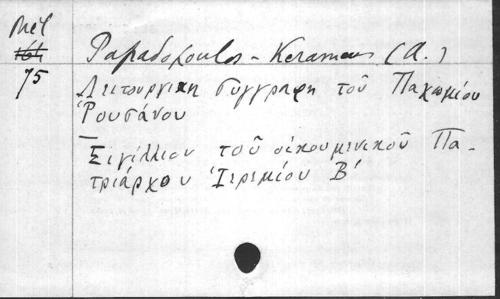 Mél
164
75
Papadopoulos-Kerameus (A.)
Λειτουργικη συγγραφη τοῦ Παχωμίου
Ῥουσάνου
—
Σιγίλλιον τοῦ οἰκουμενικοῦ Πα-
τριάρχου Ἰερεμίου Β'